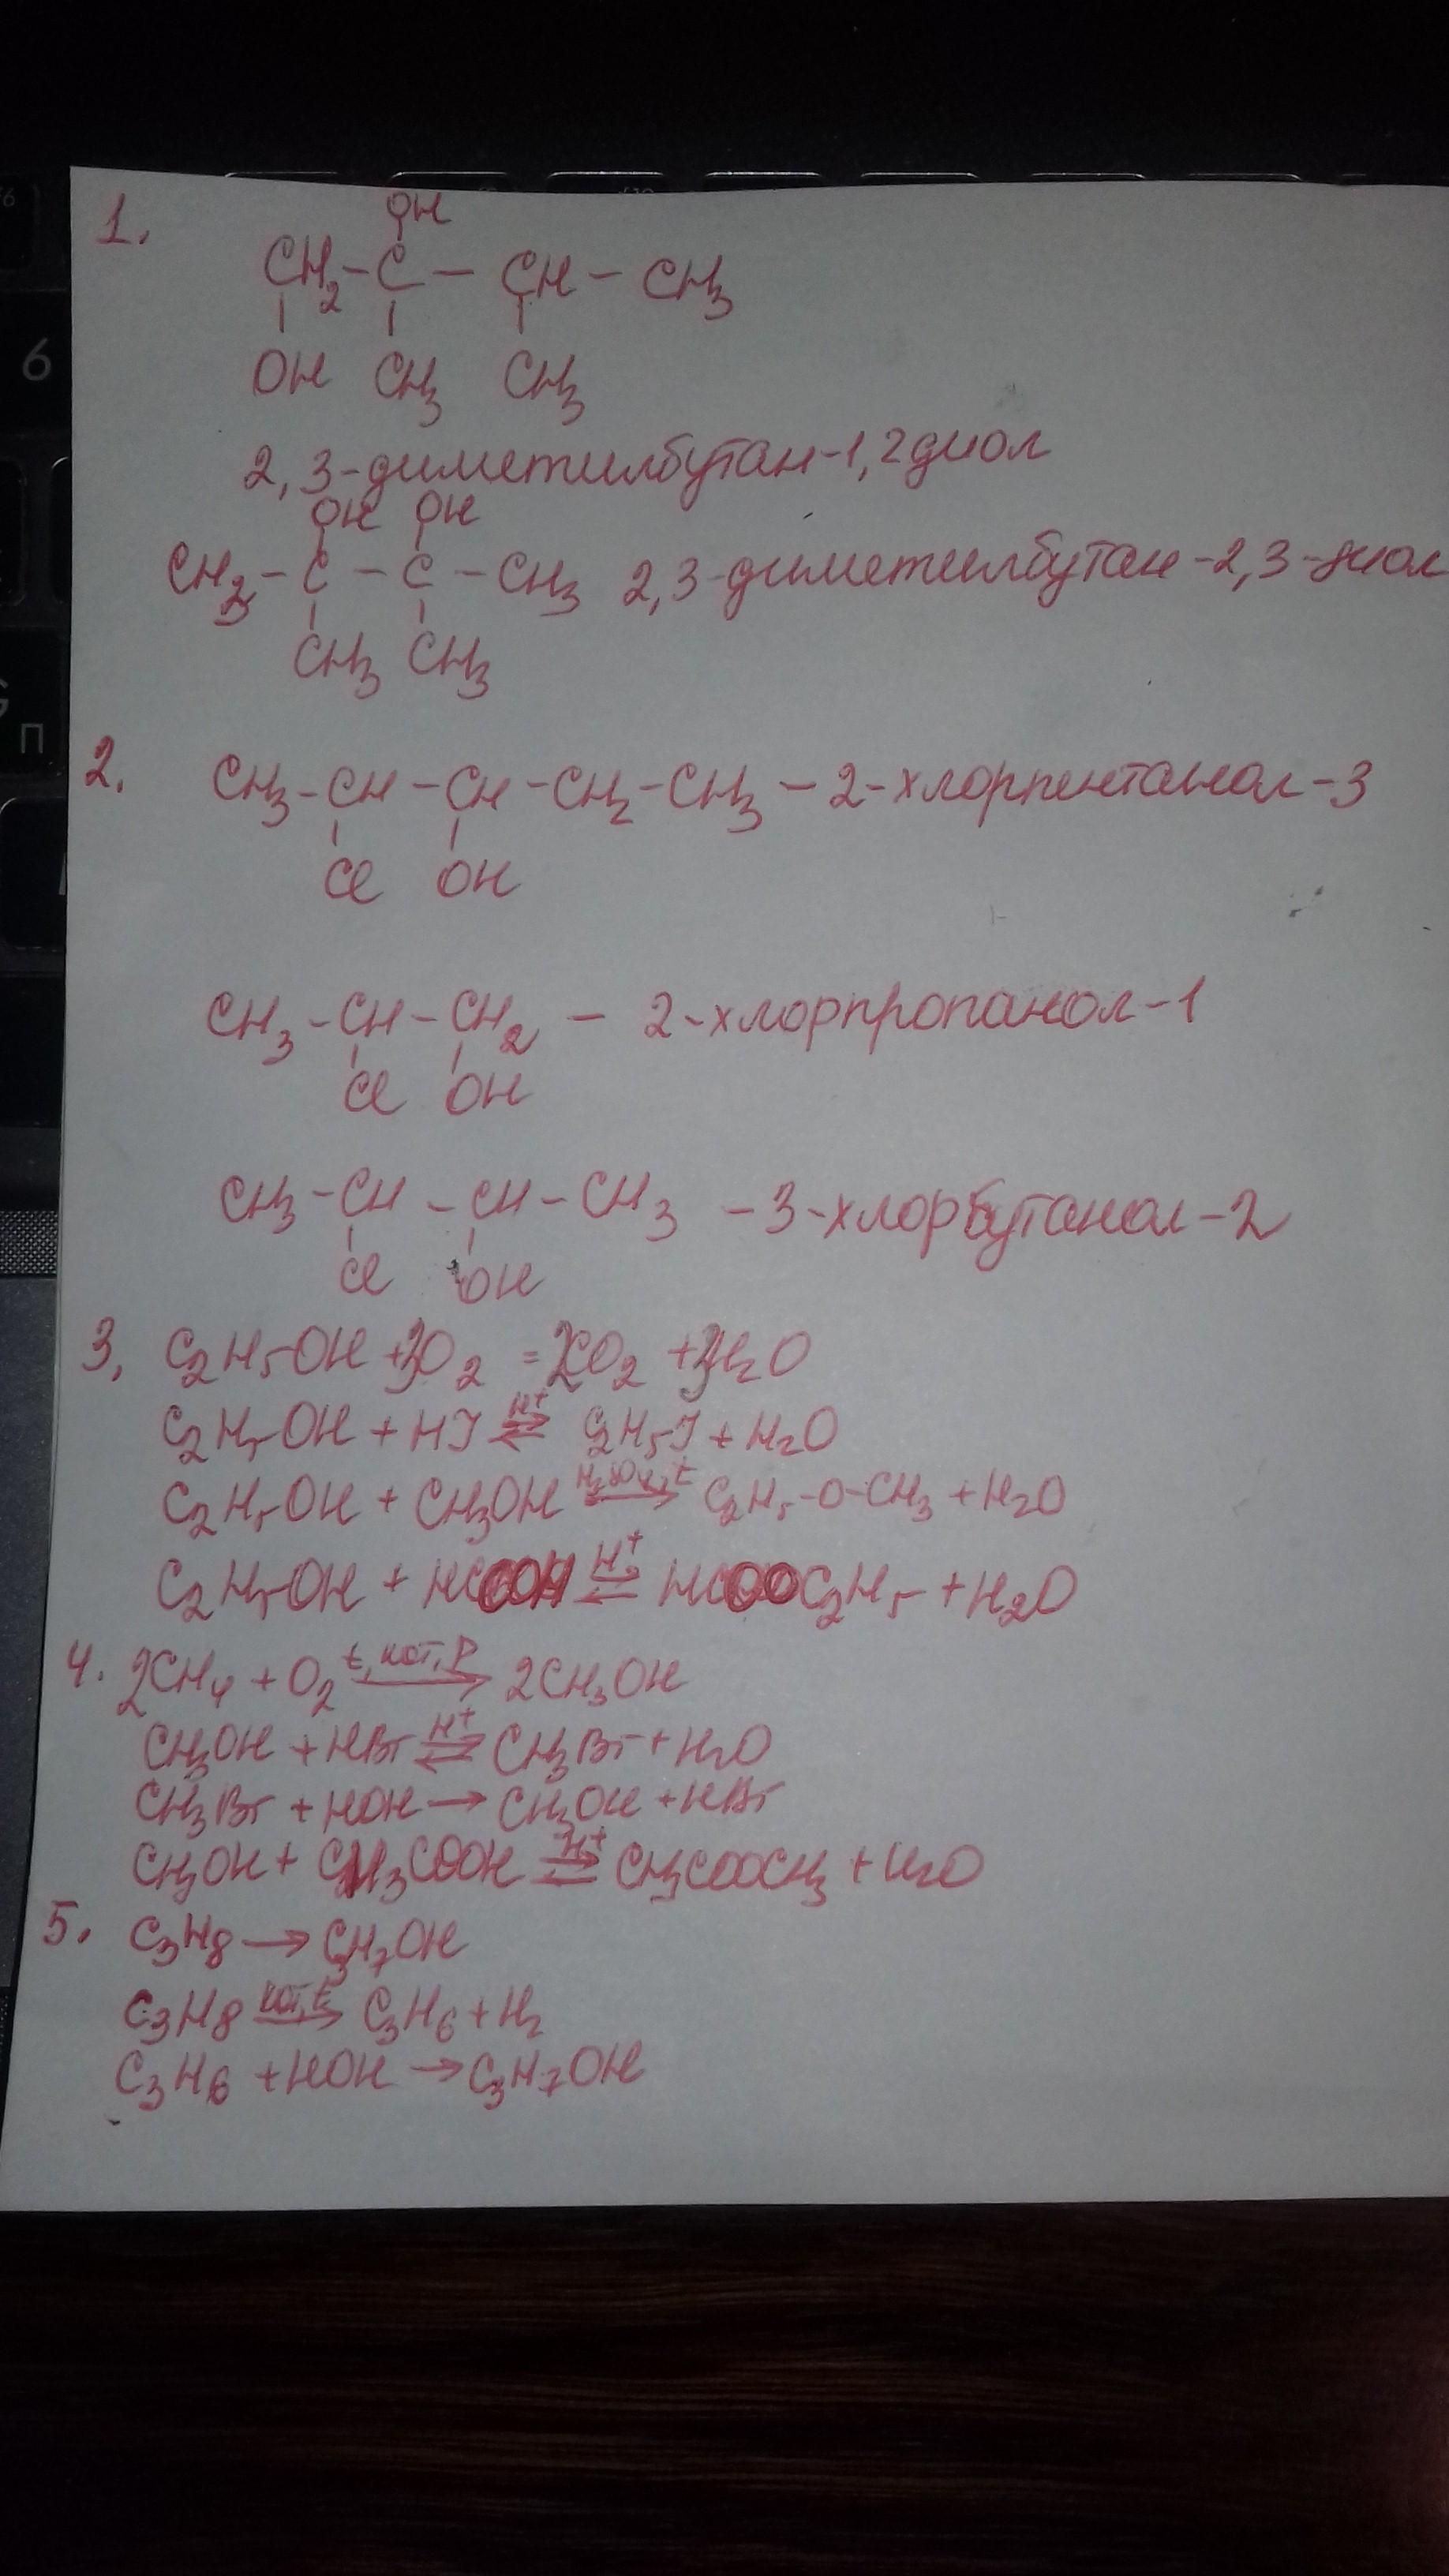 1.
OH
CH2 - C - CH - CH3
OH CH3 CH3
2,3-диметилбутан-1,2диол
OH OH
CH3 - C - C - CH3 2,3-диметилбутан-2,3-диол
CH3 CH3
2. CH3 - CH - CH - CH2 - CH3 - 2-хлорпентанол-3
Cl OH
CH3 - CH - CH2 - 2-хлорпропанол-1
Cl OH
CH3 - CH - CH - CH3 - 3-хлорбутанол-2
Cl OH
3, C2H5OH + 3O2 = 2CO2 + 3H2O
C2H5OH + HJ ⇌ H+ C2H5J + H2O
C2H5OH + CH3OH H2SO4, t → C2H5-O-CH3 + H2O
C2H5OH + HCOOH H+ ⇌ HCOOC2H5 + H2O
4. 2CH4 + O2 t, кат, P → 2CH3OH
CH3OH + HBr H+ ⇌ CH3Br + H2O
CH3Br + HOH → CH3OH + HBr
CH3OH + CH3COOH H+ ⇌ CH3COOCH3 + H2O
5. C3H8 → C3H7OH
C3H8 кат, t → C3H6 + H2
C3H6 + HOH → C3H7OH
6
П